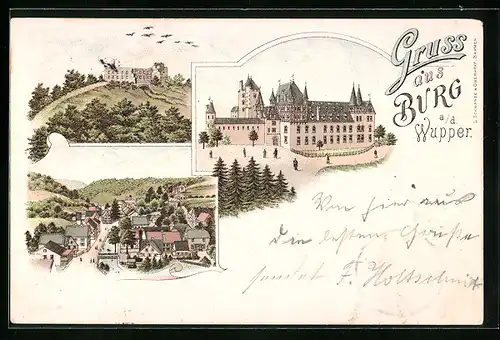 Gruss
aus
BURG
a/d.
Wupper.
Von hier aus
die besten Grüße
sendet F. Holtschmit